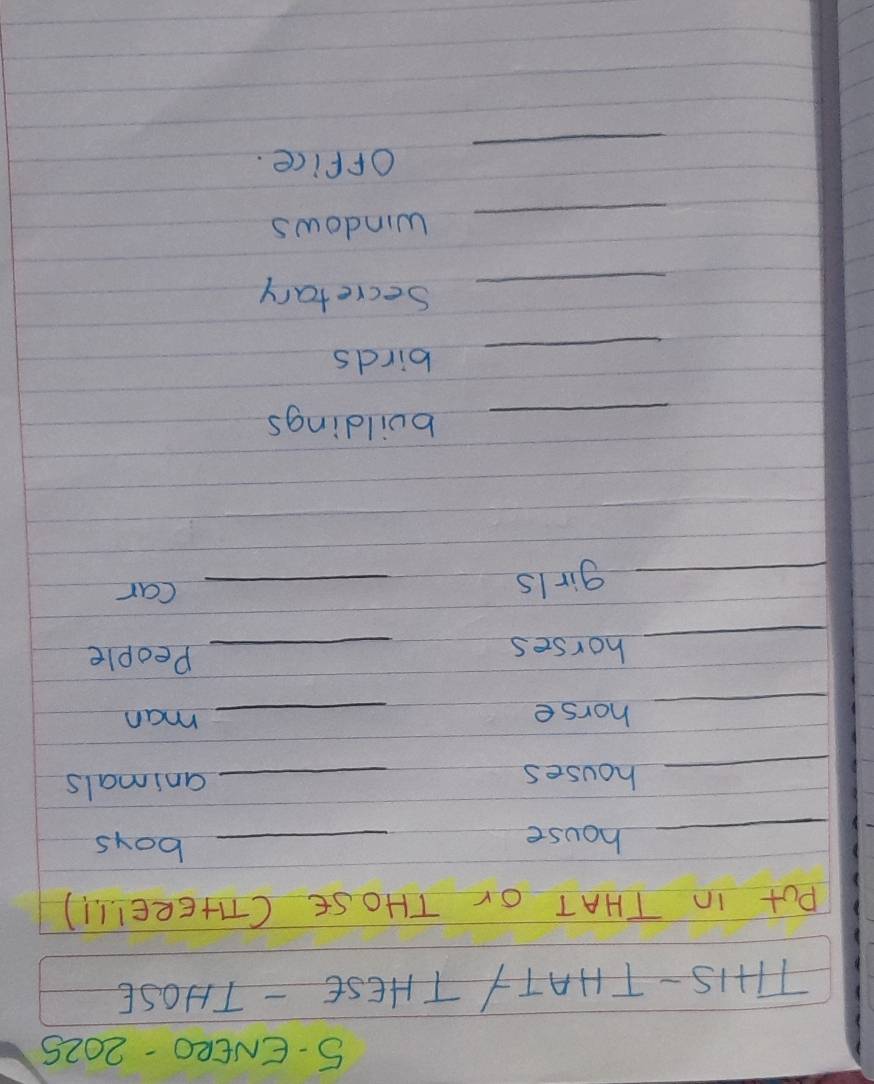 5-ENERO - 2025
THIS-THAT / THESE - THOSE
Put in THAT or THOSE (THERE!!!)
________ house ________ boys
________ houses ________ animals
________ horse ________ man
________ horses ________ People
________ girls ________ car
________ buildings
________ birds
________ Secretary
________ windows
________ Office.